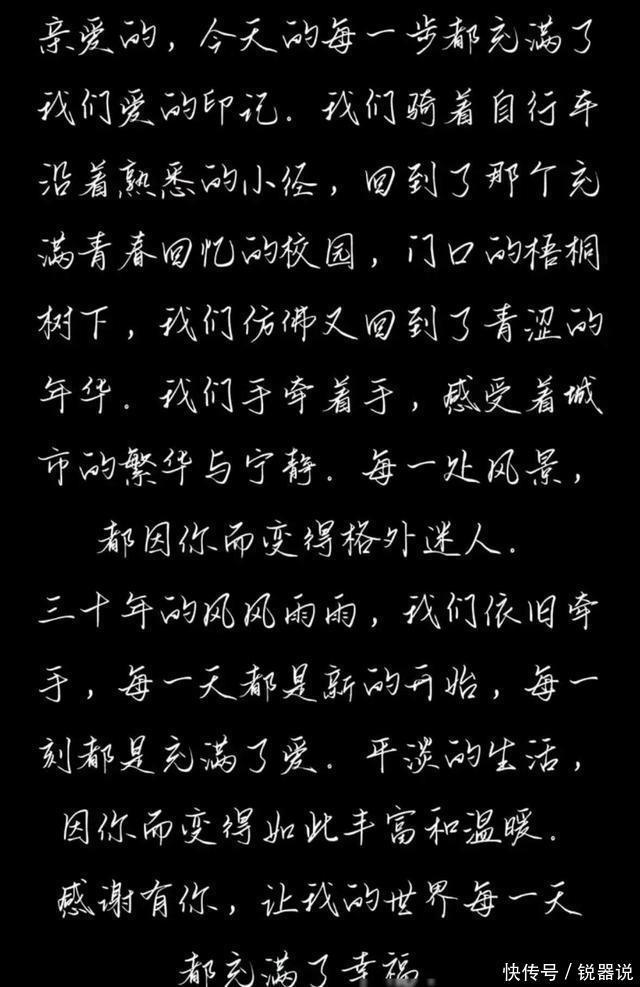 亲爱的，今天的每一步都充满了
我们爱的印记．我们骑着自行车
沿着熟悉的小径，回到了那个充
满青春回忆的校园，门口的梧桐
树下，我们仿佛又回到了青涩的
年华．我们手牵着手，感受着城
市的繁华与宁静．每一处风景，
都因你而变得格外迷人．
三十年的风风雨雨，我们依旧牵
手，每一天都是新的开始，每一
刻都是充满了爱．平淡的生活，
因你而变得如此丰富和温暖．
感谢有你，让我的世界每一天
都充满了幸福．
快传号／锐器说